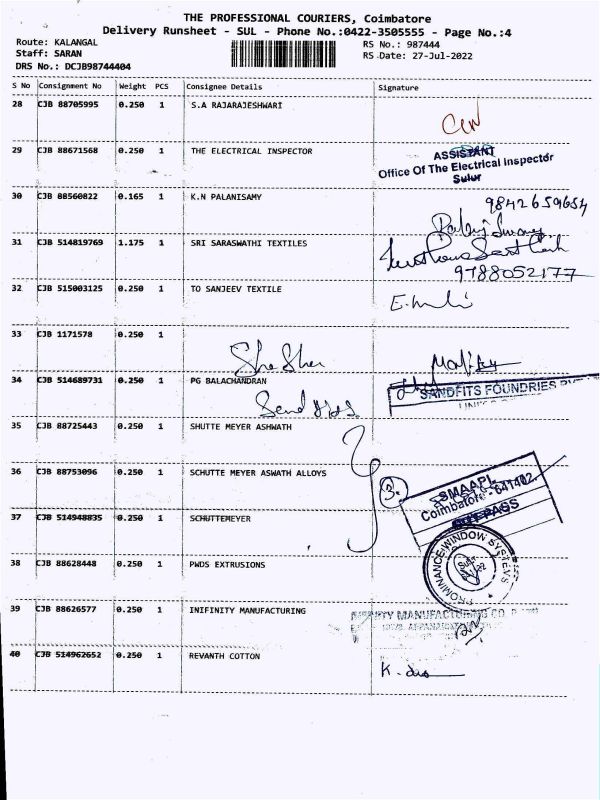 THE PROFESSIONAL COURIERS, Coimbatore
Delivery Runsheet - SUL - Phone No.:0422-3505555 - Page No.:4
Route: KALANGAL
RS No.: 987444
Staff: SARAN
RS Date: 27-Jul-2022
DRS No.: DCJB98744404
S No Consignment No Weight PCS Consignee Details Signature
28 CJB 88705995 0.250 1 S.A RAJARAJESHWARI
29 CJB 88671568 0.250 1 THE ELECTRICAL INSPECTOR
ASSISTANT
Office Of The Electrical Inspector
Sulur
30 CJB 88560822 0.165 1 K.N PALANISAMY
9842659654
31 CJB 514819769 1.175 1 SRI SARASWATHI TEXTILES
9788052177
32 CJB 515003125 0.250 1 TO SANJEEV TEXTILE
33 CJB 1171578 0.250 1
34 CJB 514689731 0.250 1 PG BALACHANDRAN
SANDFITS FOUNDRIES
35 CJB 88725443 0.250 1 SHUTTE MEYER ASHWATH
36 CJB 88753096 0.250 1 SCHUTTE MEYER ASWATH ALLOYS
3.
SMAAPL
Coimbatore - 641402.
OUT PASS
37 CJB 514948835 0.250 1 SCHUTTEMEYER
38 CJB 88628448 0.250 1 PWDS EXTRUSIONS
PROMINANCE WINDOW SYSTEMS
39 CJB 88626577 0.250 1 INIFINITY MANUFACTURING
MANUFACTURING CO.
40 CJB 514962652 0.250 1 REVANTH COTTON